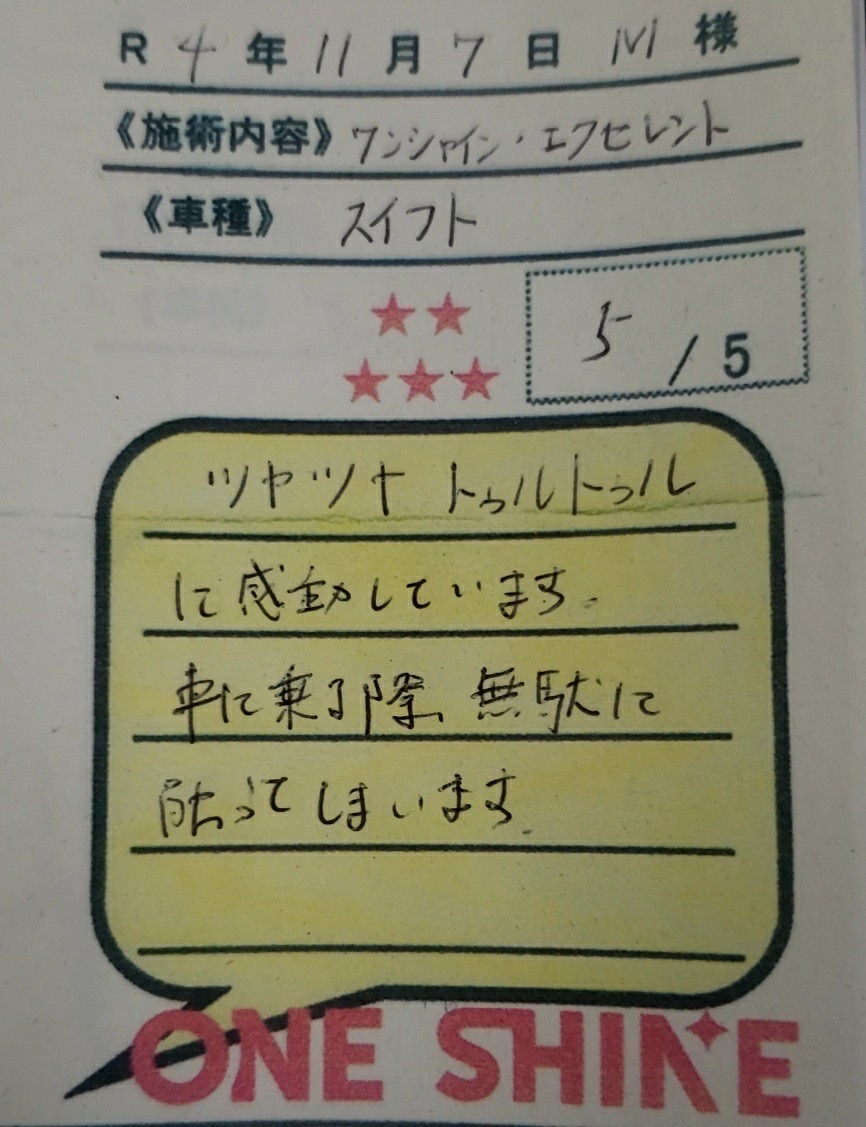 R 4 年 11 月 7 日 M 様
《施術内容》ワンシャイン・エクセレント
《車種》 スイフト
★★
★★★
5 / 5
ツヤツヤ トゥルトゥル
に感動しています。
車に乗る際、無駄に
触ってしまいます。
ONE SHINE